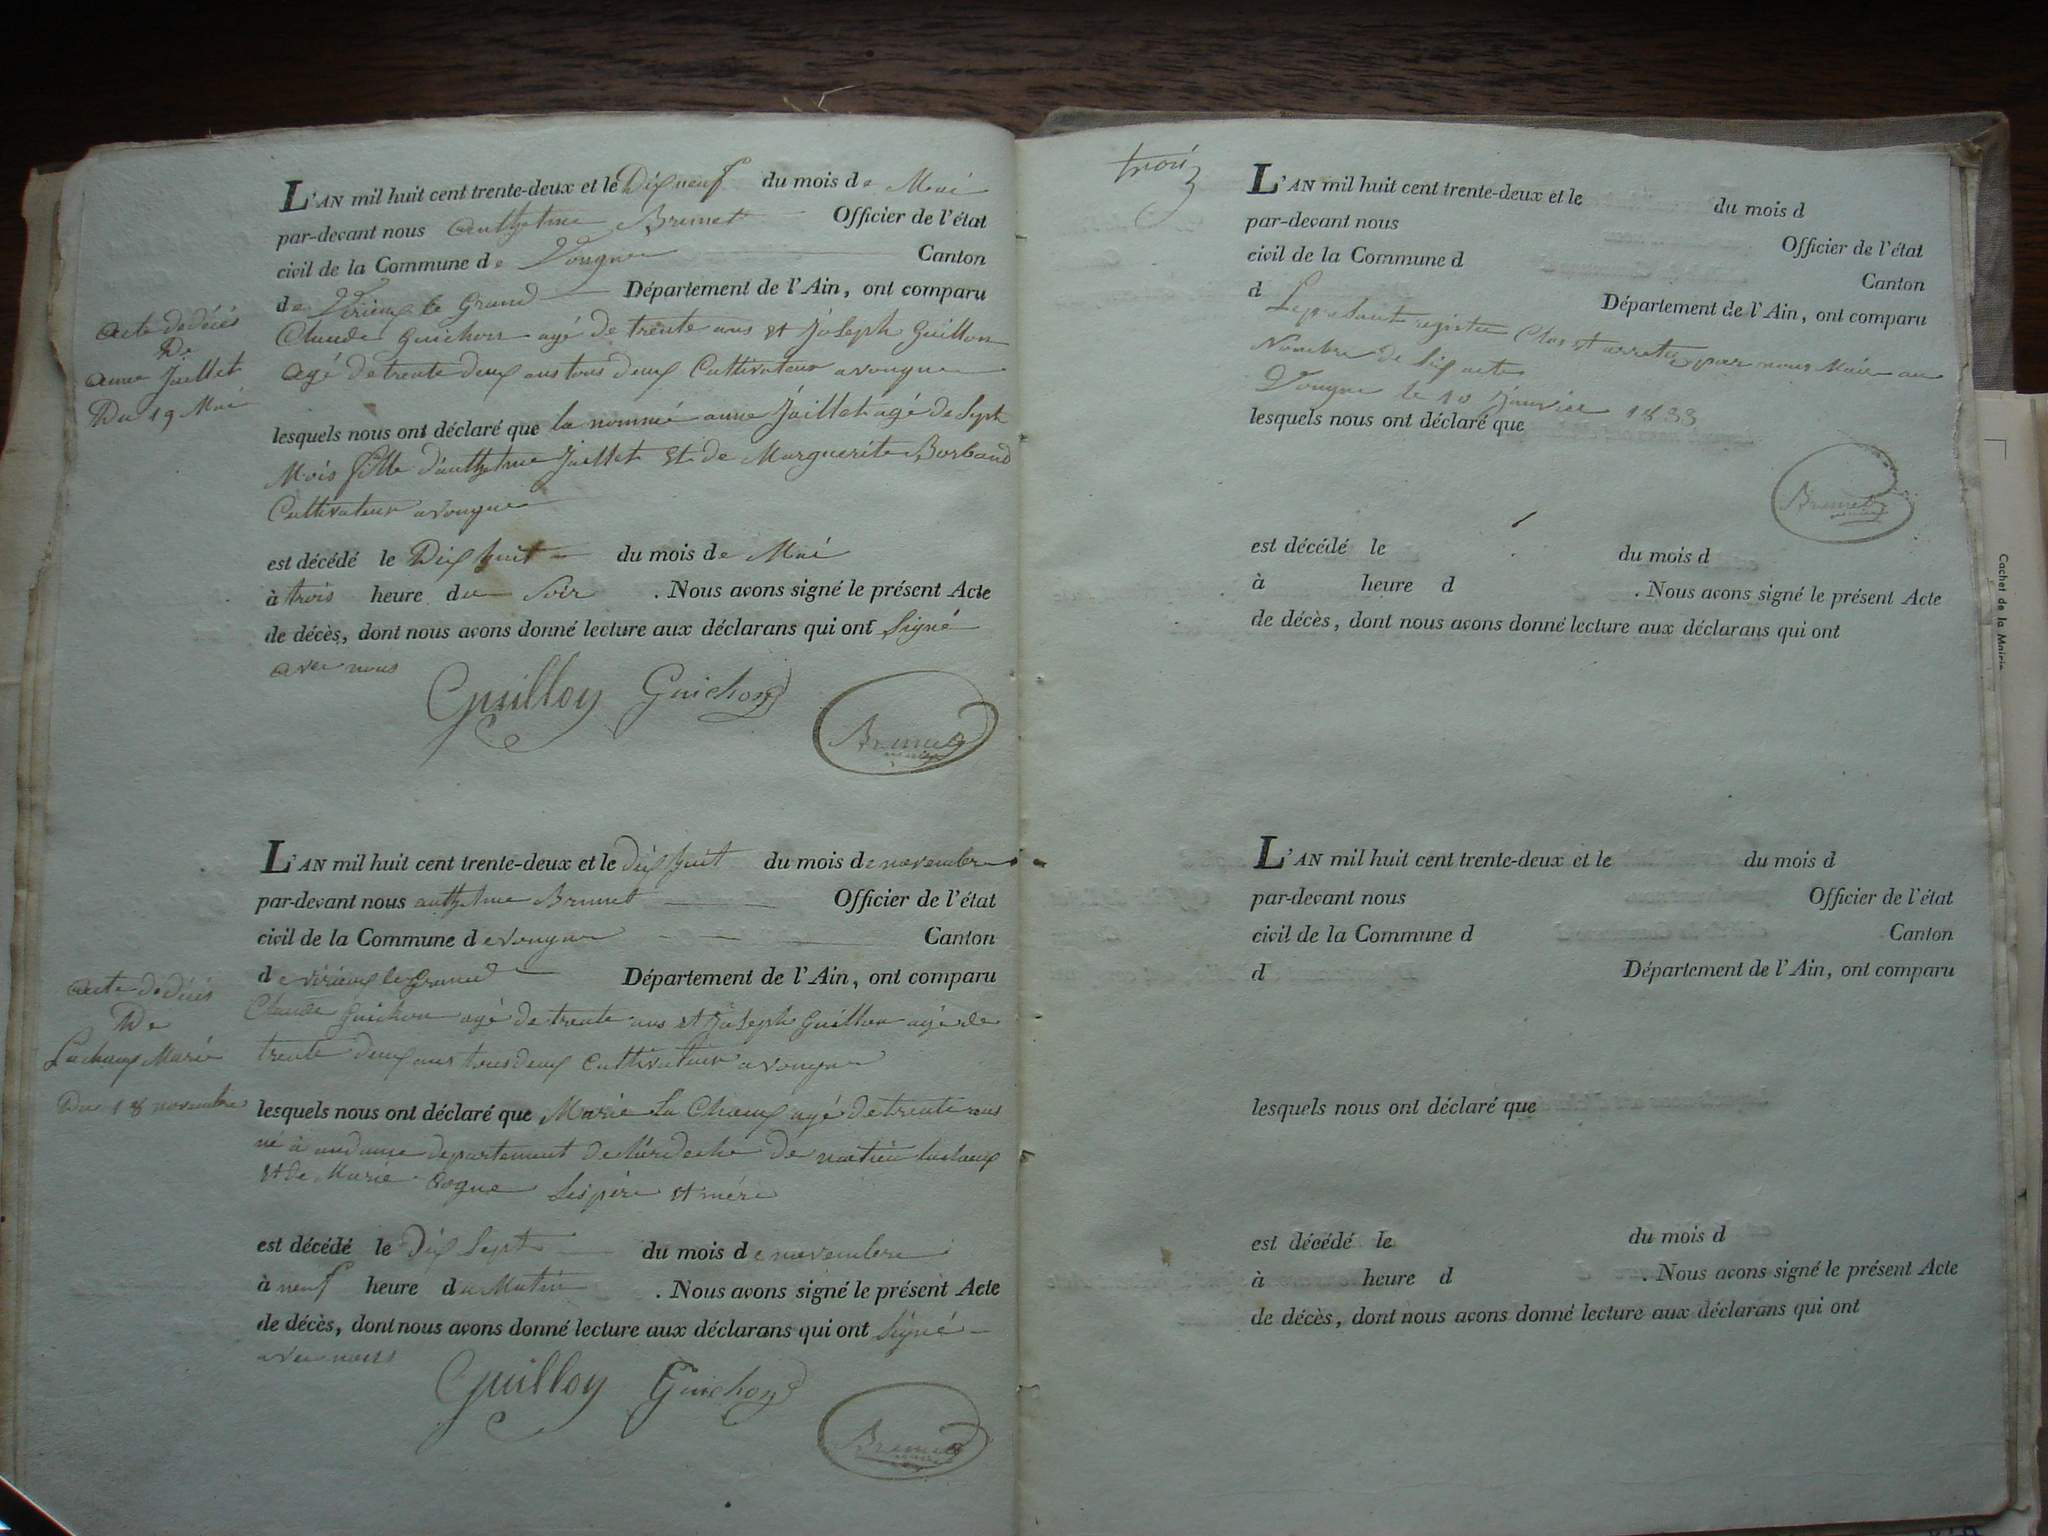 acte de décès
De
anne Jaillet
Du 19 Mai
L'AN mil huit cent trente-deux et le Dix neuf du mois de Mai
par-devant nous anthelme Brunet Officier de l'état
civil de la Commune de Vongne Canton
de Virieux le Grand Département de l'Ain, ont comparu
Claude Guichon agé de trente ans et Joseph Guillon
agé de trente deux ans tous deux Cultivateur a vongne
lesquels nous ont déclaré que la nommé anne Jaillet agé de Sept
Mois fille d'anthelme Jaillet et de Marguerite Borband
Cultivateur a vongne
est décédé le Dix huit du mois de Mai
à trois heure du Soir . Nous avons signé le présent Acte
de décès, dont nous avons donné lecture aux déclarans qui ont Signé
avec nous
Guilloy Guichon
Brunet
maire
acte de décès
De
Lachamp Marie
Du 18 novembre
L'AN mil huit cent trente-deux et le dix huit du mois de novembre
par-devant nous anthelme Brunet Officier de l'état
civil de la Commune de vongne Canton
de virieux le Grand Département de l'Ain, ont comparu
Claude Guichon agé de trente ans et Joseph Guillon agé de
trente deux ans tous deux Cultivateur a vongne
lesquels nous ont déclaré que Marie La Champ agé de trente ans
né à andance departement de l'ardeche de
et de Marie Ses père et mére
est décédé le Dix Sept du mois de novembre
à neuf heure du Matin . Nous avons signé le présent Acte
de décès, dont nous avons donné lecture aux déclarans qui ont Signé
avec nous
Guilloy Guichon
Brunet
maire
trois
L'AN mil huit cent trente-deux et le du mois d
par-devant nous Officier de l'état
civil de la Commune d Canton
d Département de l'Ain, ont comparu
Le présent registre Clos et arreté par nous Maire au
Nombre de Six acte
Vongne le 10 Janvier 1833
lesquels nous ont déclaré que
Brunet
maire
est décédé le du mois d
à heure d . Nous avons signé le présent Acte
de décès, dont nous avons donné lecture aux déclarans qui ont
L'AN mil huit cent trente-deux et le du mois d
par-devant nous Officier de l'état
civil de la Commune d Canton
d Département de l'Ain, ont comparu
lesquels nous ont déclaré que
est décédé le du mois d
à heure d . Nous avons signé le présent Acte
de décès, dont nous avons donné lecture aux déclarans qui ont
Cachet de la Mairie